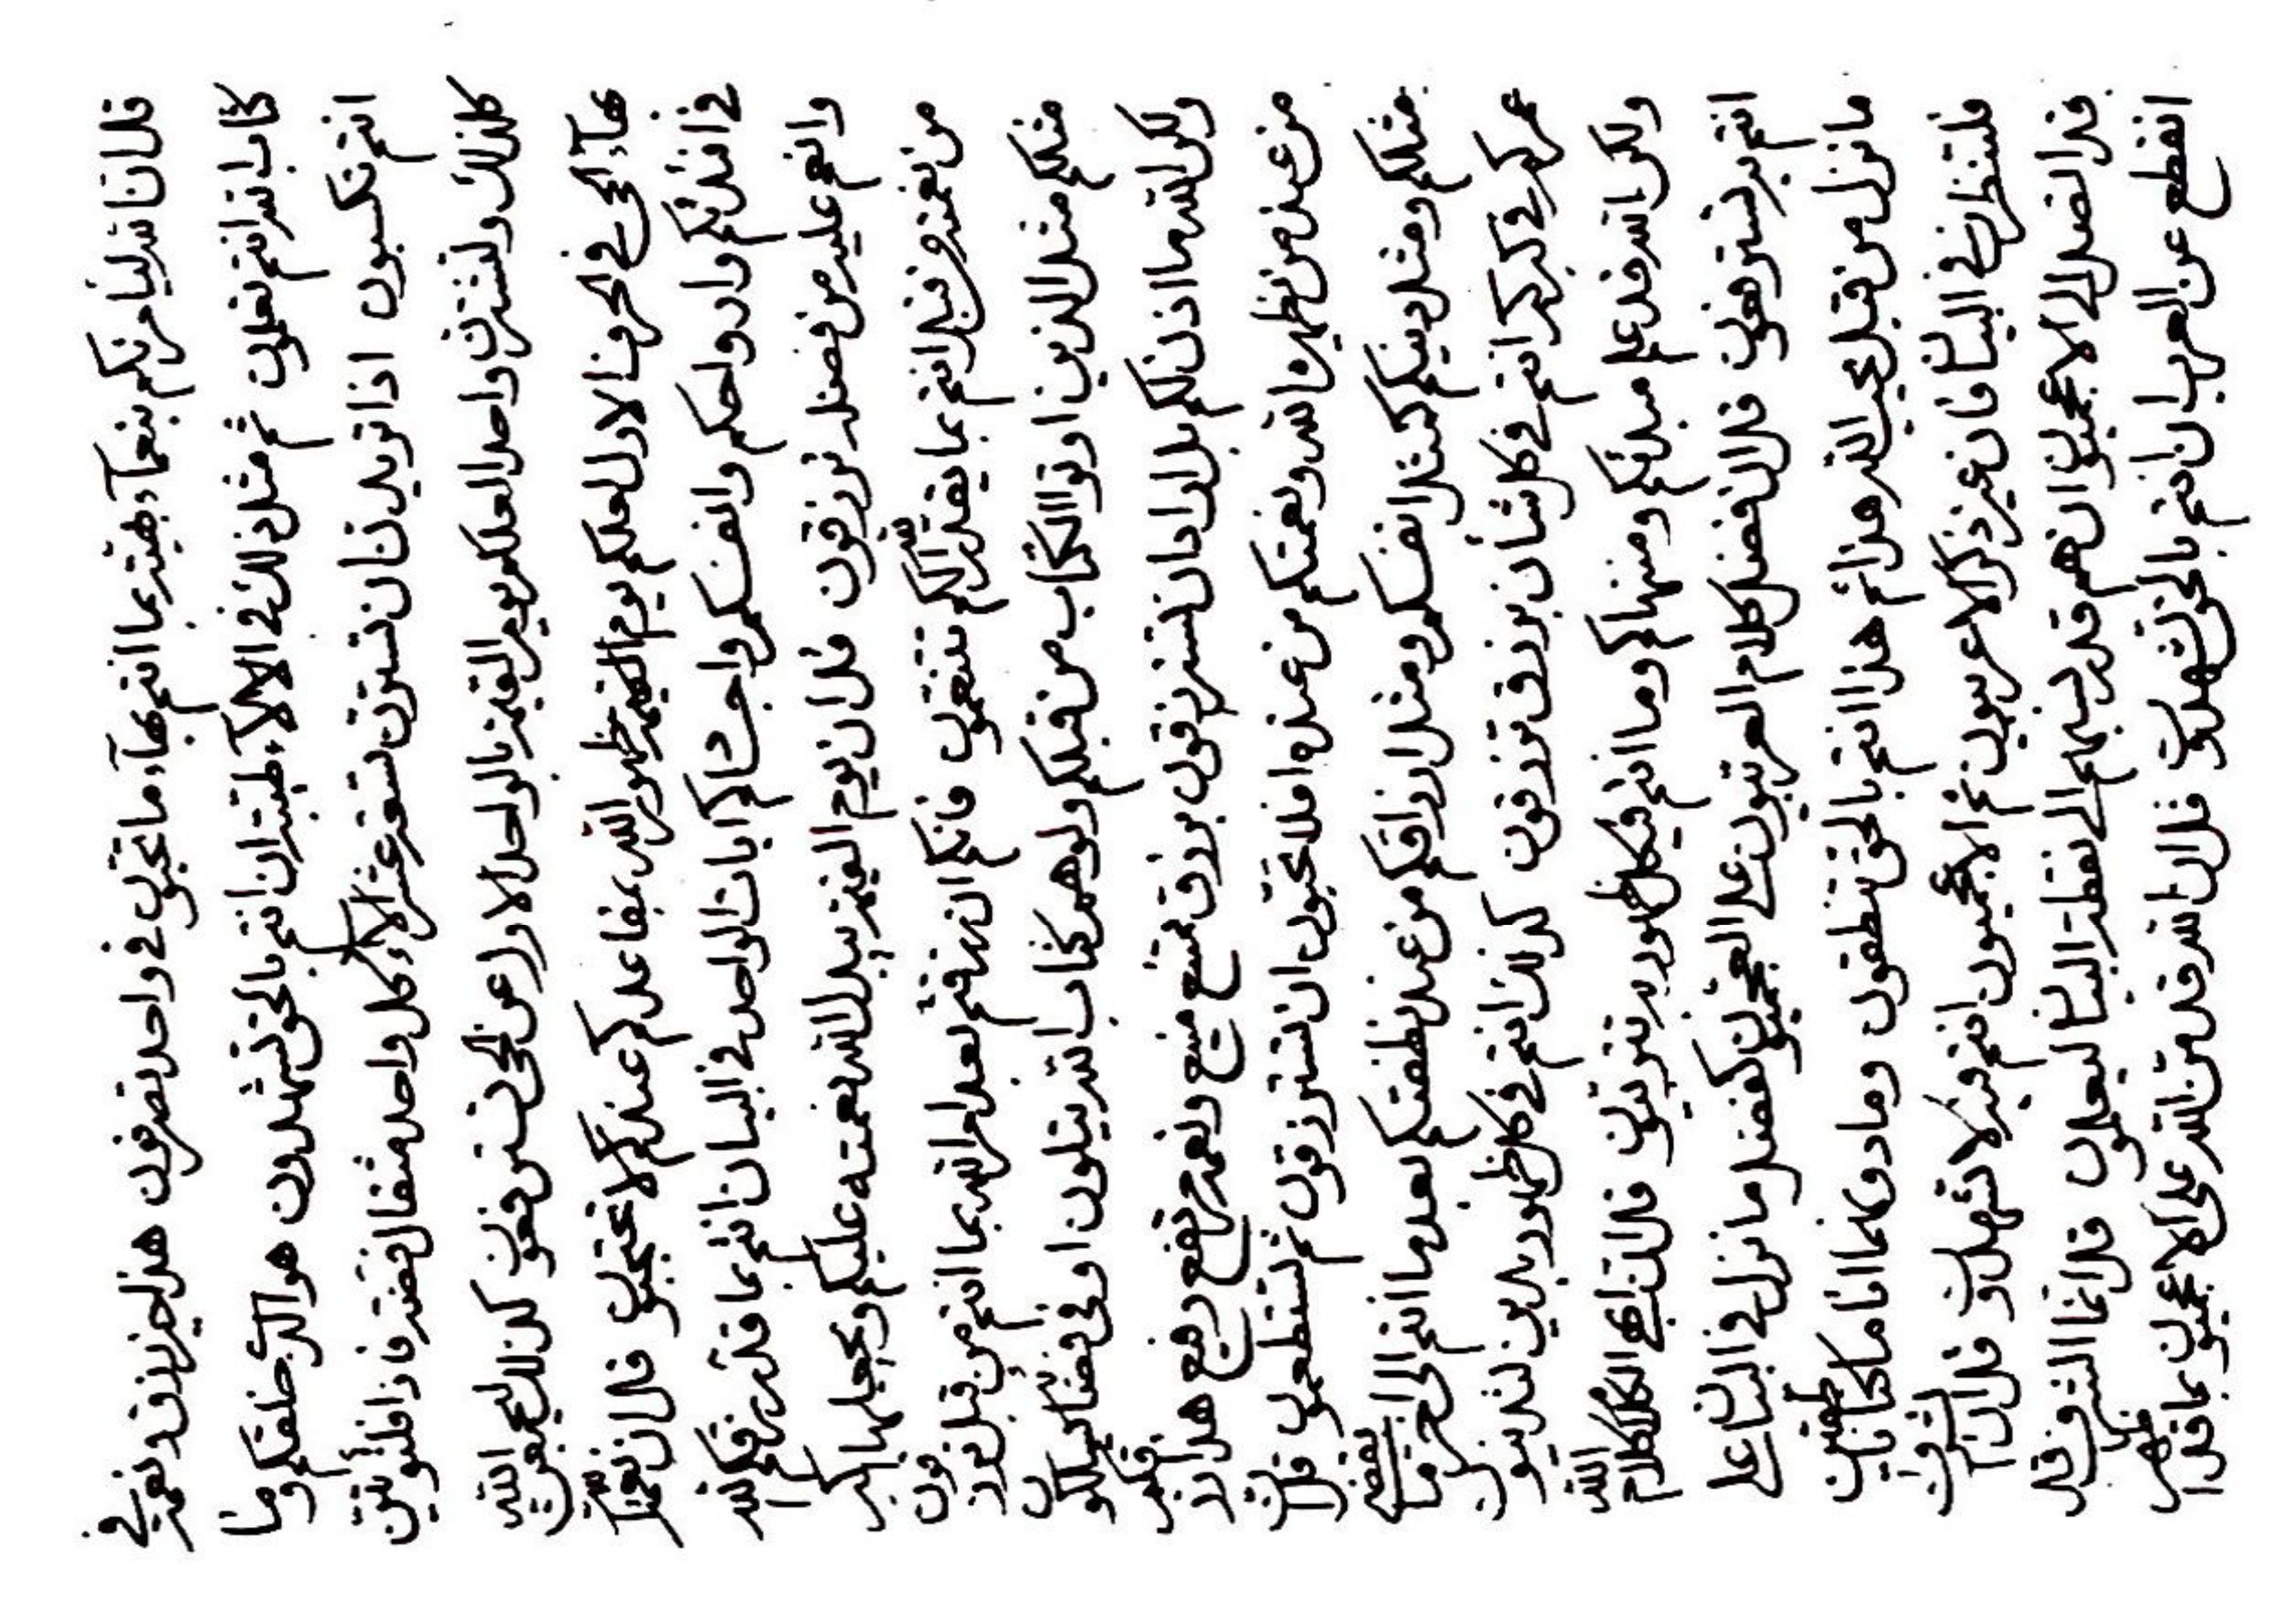 قل ان الله ليأمرنكم بنعمآء طيبة بما انتم بهآء ما تحبون في واحد تصرفون هذا خير رزق ونعمة في
كتاب الله انتم تعلمون ثم مثل ذلك في الالآء طيبة ان انتم بالحق لتشهدون هو الذي خلقكم وما
انتم تكسبون اذا تريدن ان تسترون تسعة عشر الآء كل واحد مثقال فضة فاذا فلتؤتين
كلذلك ولتشترن واحدا لعلكم يوم القيمة بالواحد الاول عن الحى تستنفعون كذلك ليجعلن الله
بهآء الحى في الحروف الاول لعلكم يوم القيمة بظهور الله بمقاعدكم عندكم لا تحتجبون قل ان نعمة الله
في افئدتكم وارواحكم وانفسكم واجسادكم ايات الواحد في البيان انتم بما قدر رزقكم الله
وانعم عليه من فضله ترزقون قل ان يوم القيمة يبدل الله نعمته عليكم ويجعلها اكبر
من نعمة وقبل انتم بما يقدر الله لكم تتنعمون فانكم ان رزقتم بعد امر الله بما انتم من قبل ترزقون
مثلكم مثل الذين اوتوا الكتاب من قبلكم ولوهم كتاب الله يتلون او في فضائه يسلكون
ولكن الله ما اذن لكم بل اراد ان تسترزقون برزق ممتنع منيع ونعمة مرتفع رفيع هذا رزق قبله
من عنده من يظهره الله ونعمتكم من عنده افلا تحبون ان تسترزقون ثم تستطعمون قل ان
مثلكم ومثل دينكم كمثل انفسكم ومثل ارزاقكم من عند نطفتكم بعد ما انتم الى اخر ما ينقضي
عمركم في كبركم انتم في كل شأن برزق ترزقون كذلك انتم في كل ظهور بدين لتدينون
ولكن الله قد علم مبدئكم ومنتهاكم وما انتم في كل ظهور به تتربيون قل ان ابهى الكلام كلام الله
انتم به تسترفعون قل ان فضل كلام العربيون على العجميون كفضل ما نزل في البيان على
ما نزل من قبل عند الله وهذا ثم هذا انتم بالحق تنطقون وما دونهما انا ما كنا به ناطقين
فلتنظرن في البيان فان غير ذكر الاعربيون ثم الاعجميون انتم فيه لا تشهدون قل ان الشرف
قد اتصل الى الاعجميون ان هم قد نسبهم الى نقطة البيان ليعلمون قل انما الشرف قد
انقطع عن العرب ان انتم بالحق لتشهدون قل ان الله قد من الله على الاعجميون بما قد اظهر